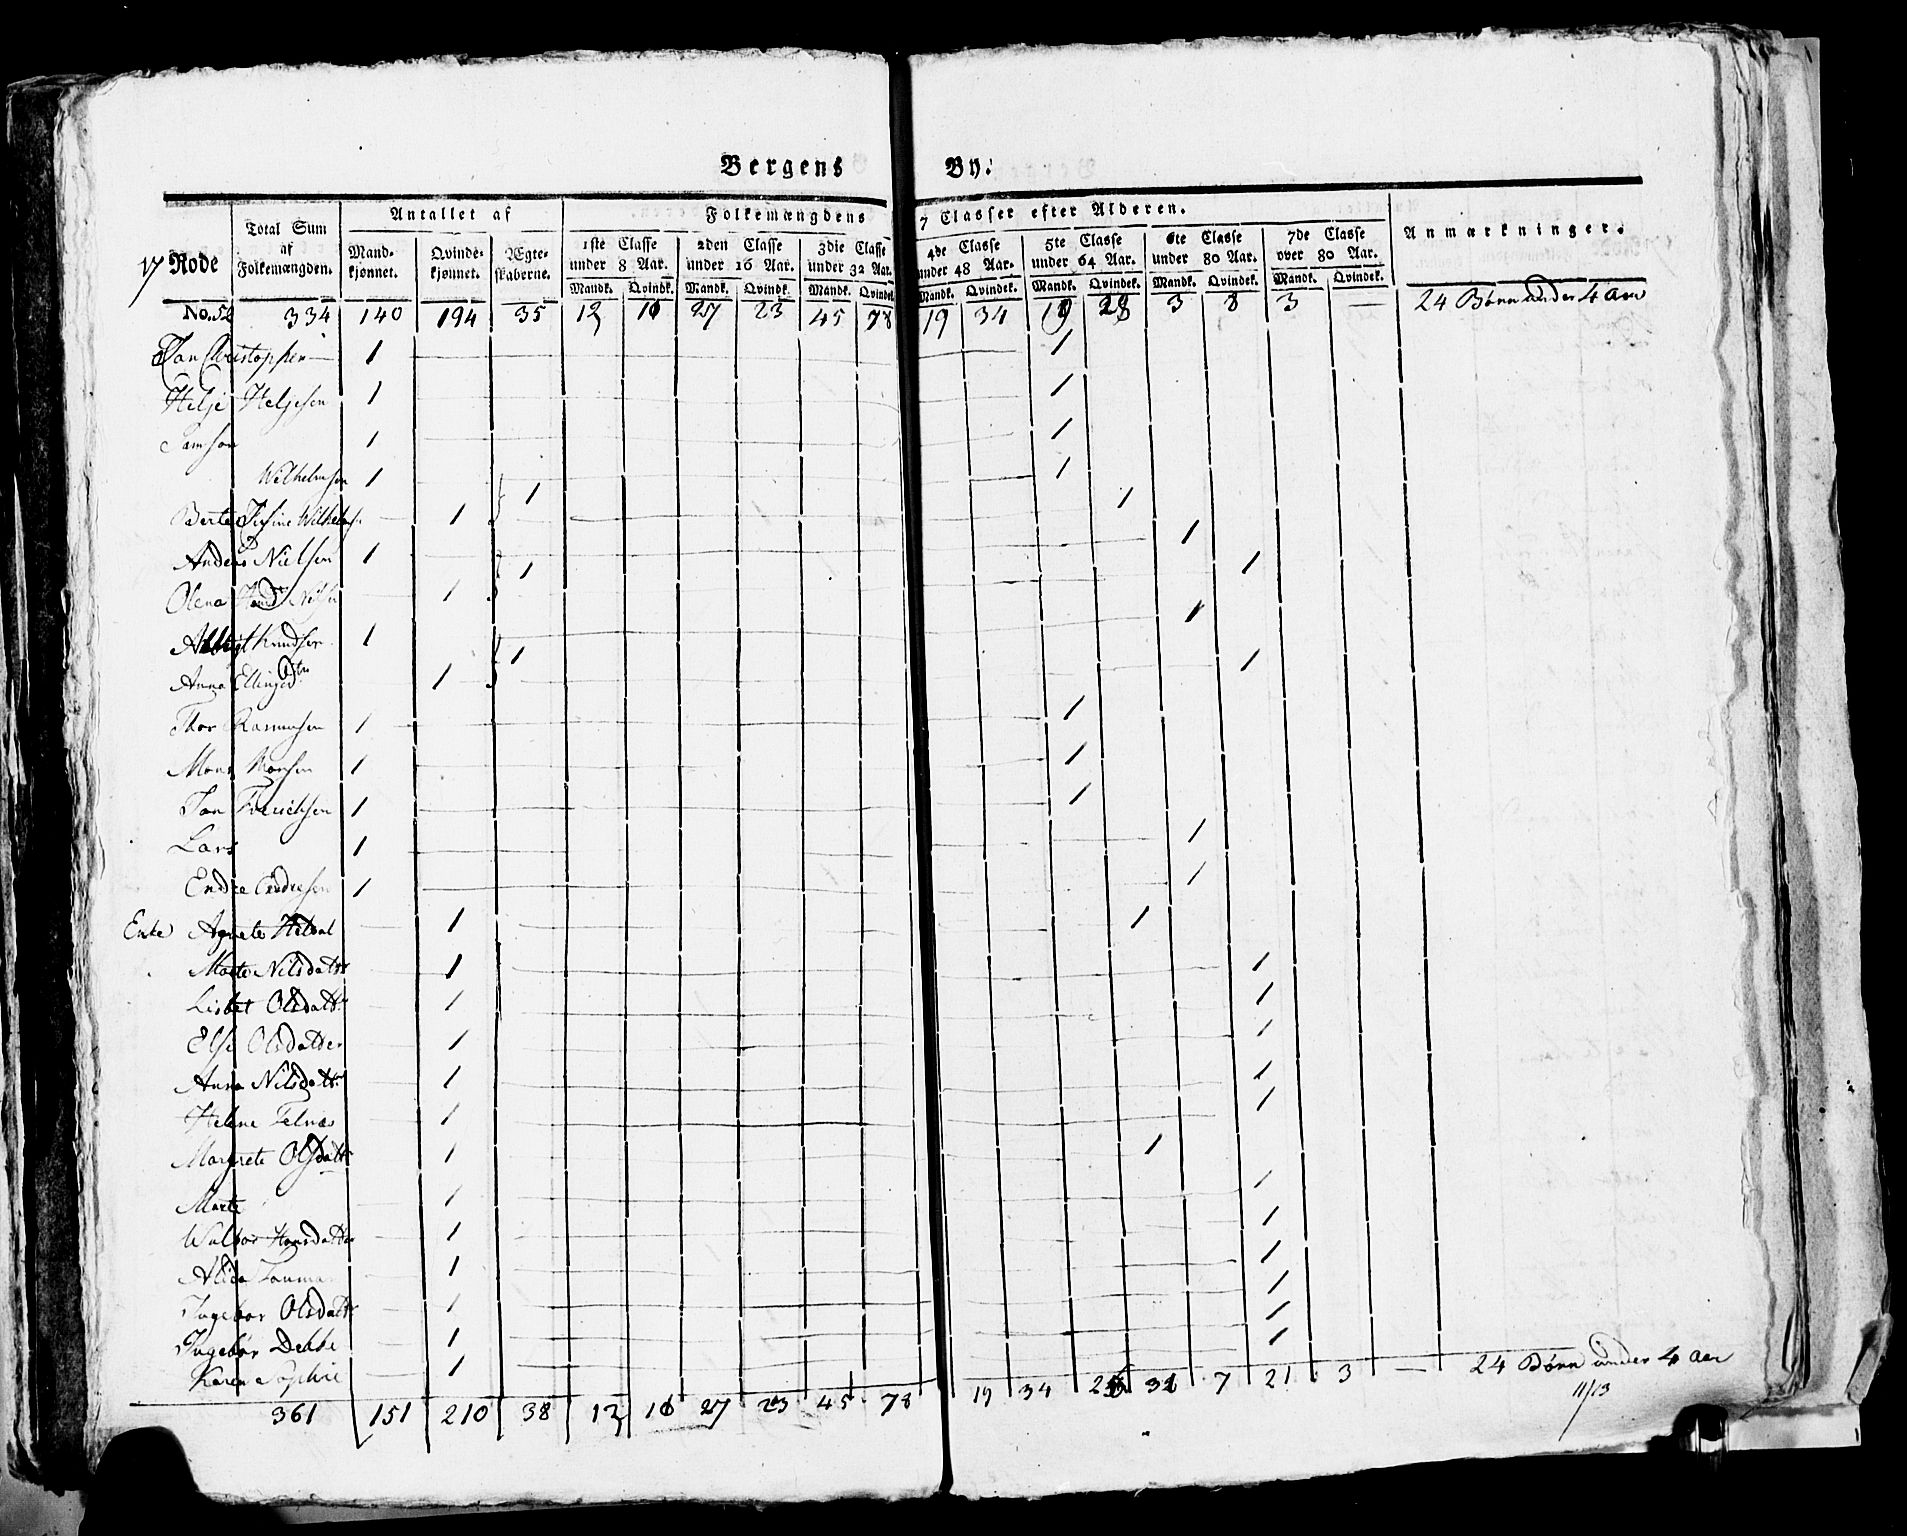 Bergens By:
17 Rode
Total Sum af Folkemængden.
Antallet af
Mand-kjønnet.
Qvinde-kjønnet.
Ægte-skaberne.
Folkemængdens 7 Classer efter Alderen.
1ste Classe under 8 Aar.
2den Classe under 16 Aar.
3die Classe under 32 Aar.
4de Classe under 48 Aar.
5te Classe under 64 Aar.
6te Classe under 80 Aar.
7de Classe over 80 Aar.
Anmærkninger.
Mandk. Qvindk. Mandk. Qvindk. Mandk. Qvindek. Mandk. Qvindek. Mandk. Qvindek. Mandk. Qvindek. Mandk. Qvindek.
No. 52 334 140 194 35 12 27 23 45 78 19 34 3 8 3 — 24 Børn under 4 Aar
Jan Christophersen 1 1
Helje Heljesen 1 1
Samson 1 1
Wilhelmsen 1 1
Berte Wilhelms 1 1 1
Anders Nielsen 1 1
Olena 1 1 1
Knudsen 1 1
Anna Ellingsdtr 1 1 1
Thor Rasmusen 1 1
Mons Monsen 1 1
Jan 1 1
Lars 1 1
Endre Endresen 1 1
Enke Agnete 1 1
Marte Nilsdattr 1 1
Lisbet Olsdattr 1 1
Else Olsdatter 1 1
Anna Nilsdattr 1 1
Helene Telnæs 1 1
Margrete Olsdattr 1 1
Marte 1 1
Walbor Hansdatter 1 1
Alida 1 1
Ingebor Olsdattr 1 1
Ingebor Debbe 1 1
Karen Sophie 1 1
361 151 210 38 12 27 23 45 78 19 34 7 21 3 — 24 Børn under 4 Aar
11/13